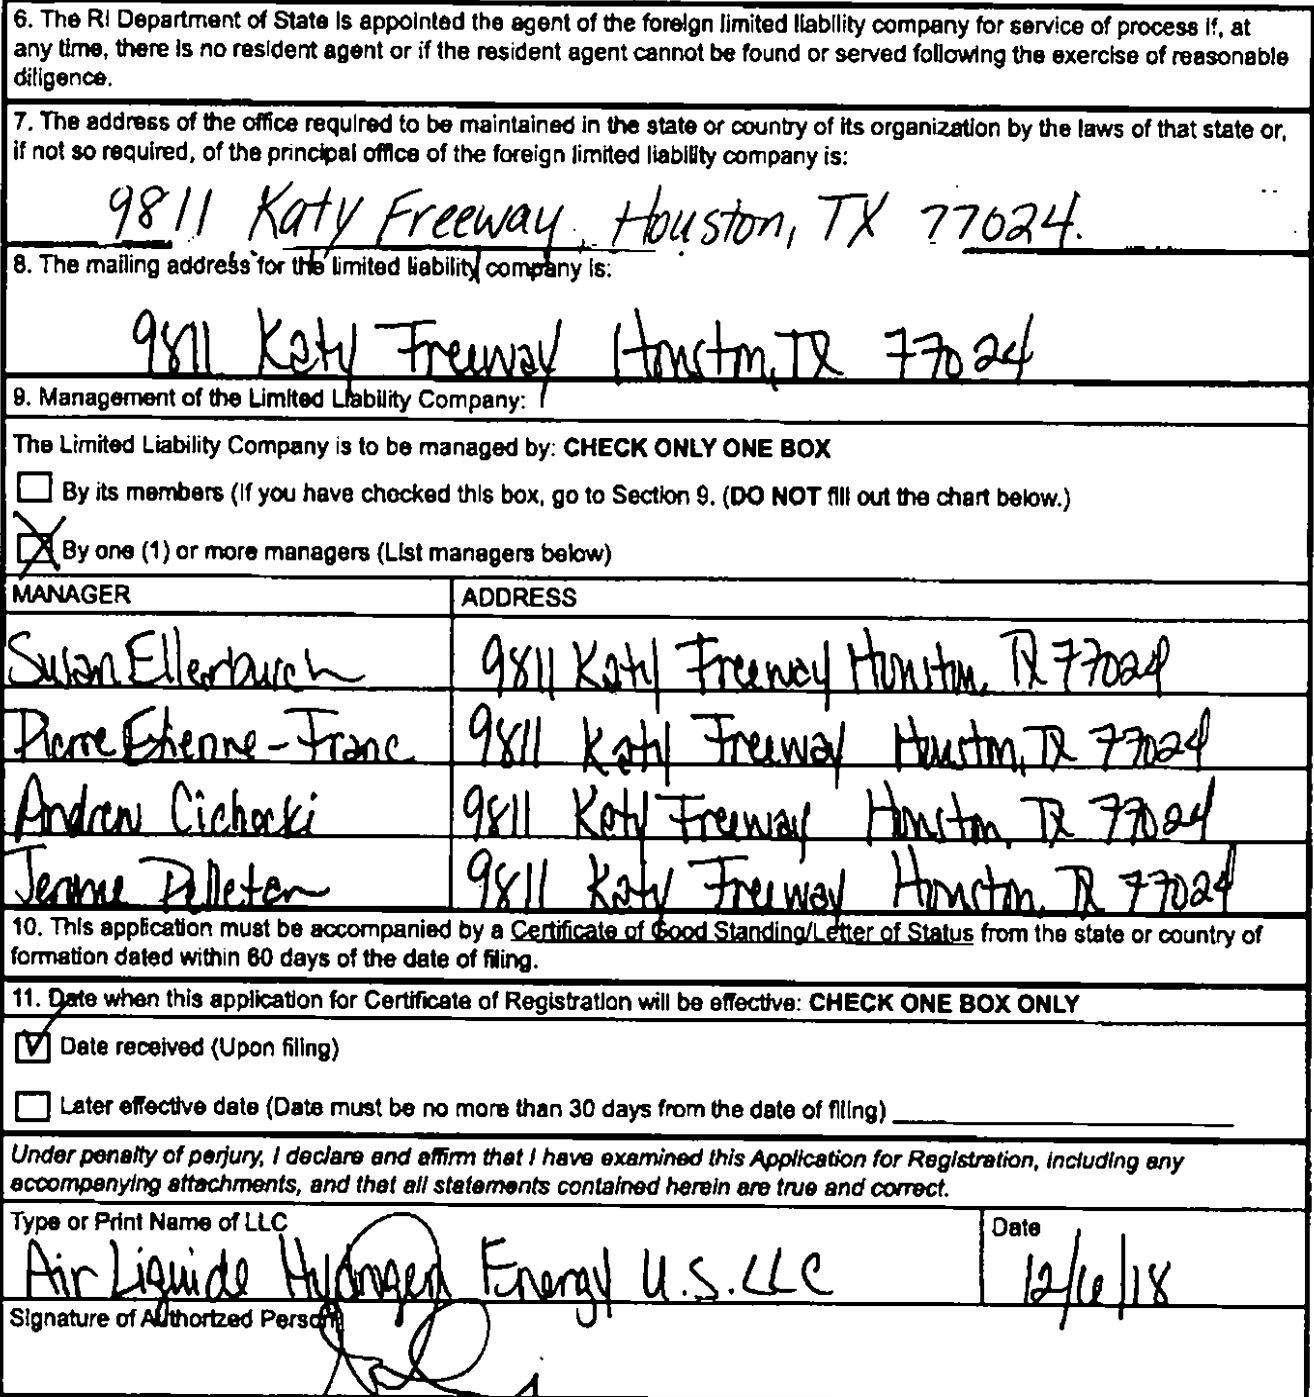 6. The RI Department of State is appointed the agent of the foreign limited liability company for service of process if, at
any time, there is no resident agent or if the resident agent cannot be found or served following the exercise of reasonable
diligence.
7. The address of the office required to be maintained in the state or country of its organization by the laws of that state or,
if not so required, of the principal office of the foreign limited liability company is:
9811 Katy Freeway, Houston, TX 77024.
8. The mailing address for the limited liability company is:
9811 Katy Freeway Houston, TX 77024
9. Management of the Limited Liability Company:
The Limited Liability Company is to be managed by: CHECK ONLY ONE BOX
By its members (If you have checked this box, go to Section 9. (DO NOT fill out the chart below.)
By one (1) or more managers (List managers below)
MANAGER ADDRESS
Susan Ellerbusch 9811 Katy Freeway Houston, TX 77024
Pierre Etienne-Franc 9811 Katy Freeway Houston, TX 77024
Andrew Cichocki 9811 Katy Freeway Houston TX 77024
Jerome Pelletan 9811 Katy Freeway Houston TX 77024
10. This application must be accompanied by a Certificate of Good Standing/Letter of Status from the state or country of
formation dated within 60 days of the date of filing.
11. Date when this application for Certificate of Registration will be effective: CHECK ONE BOX ONLY
Date received (Upon filing)
Later effective date (Date must be no more than 30 days from the date of filing)
Under penalty of perjury, I declare and affirm that I have examined this Application for Registration, including any
accompanying attachments, and that all statements contained herein are true and correct.
Type or Print Name of LLC Date
Air Liquide Hydrogen Energy U.S. LLC
Signature of Authorized Person